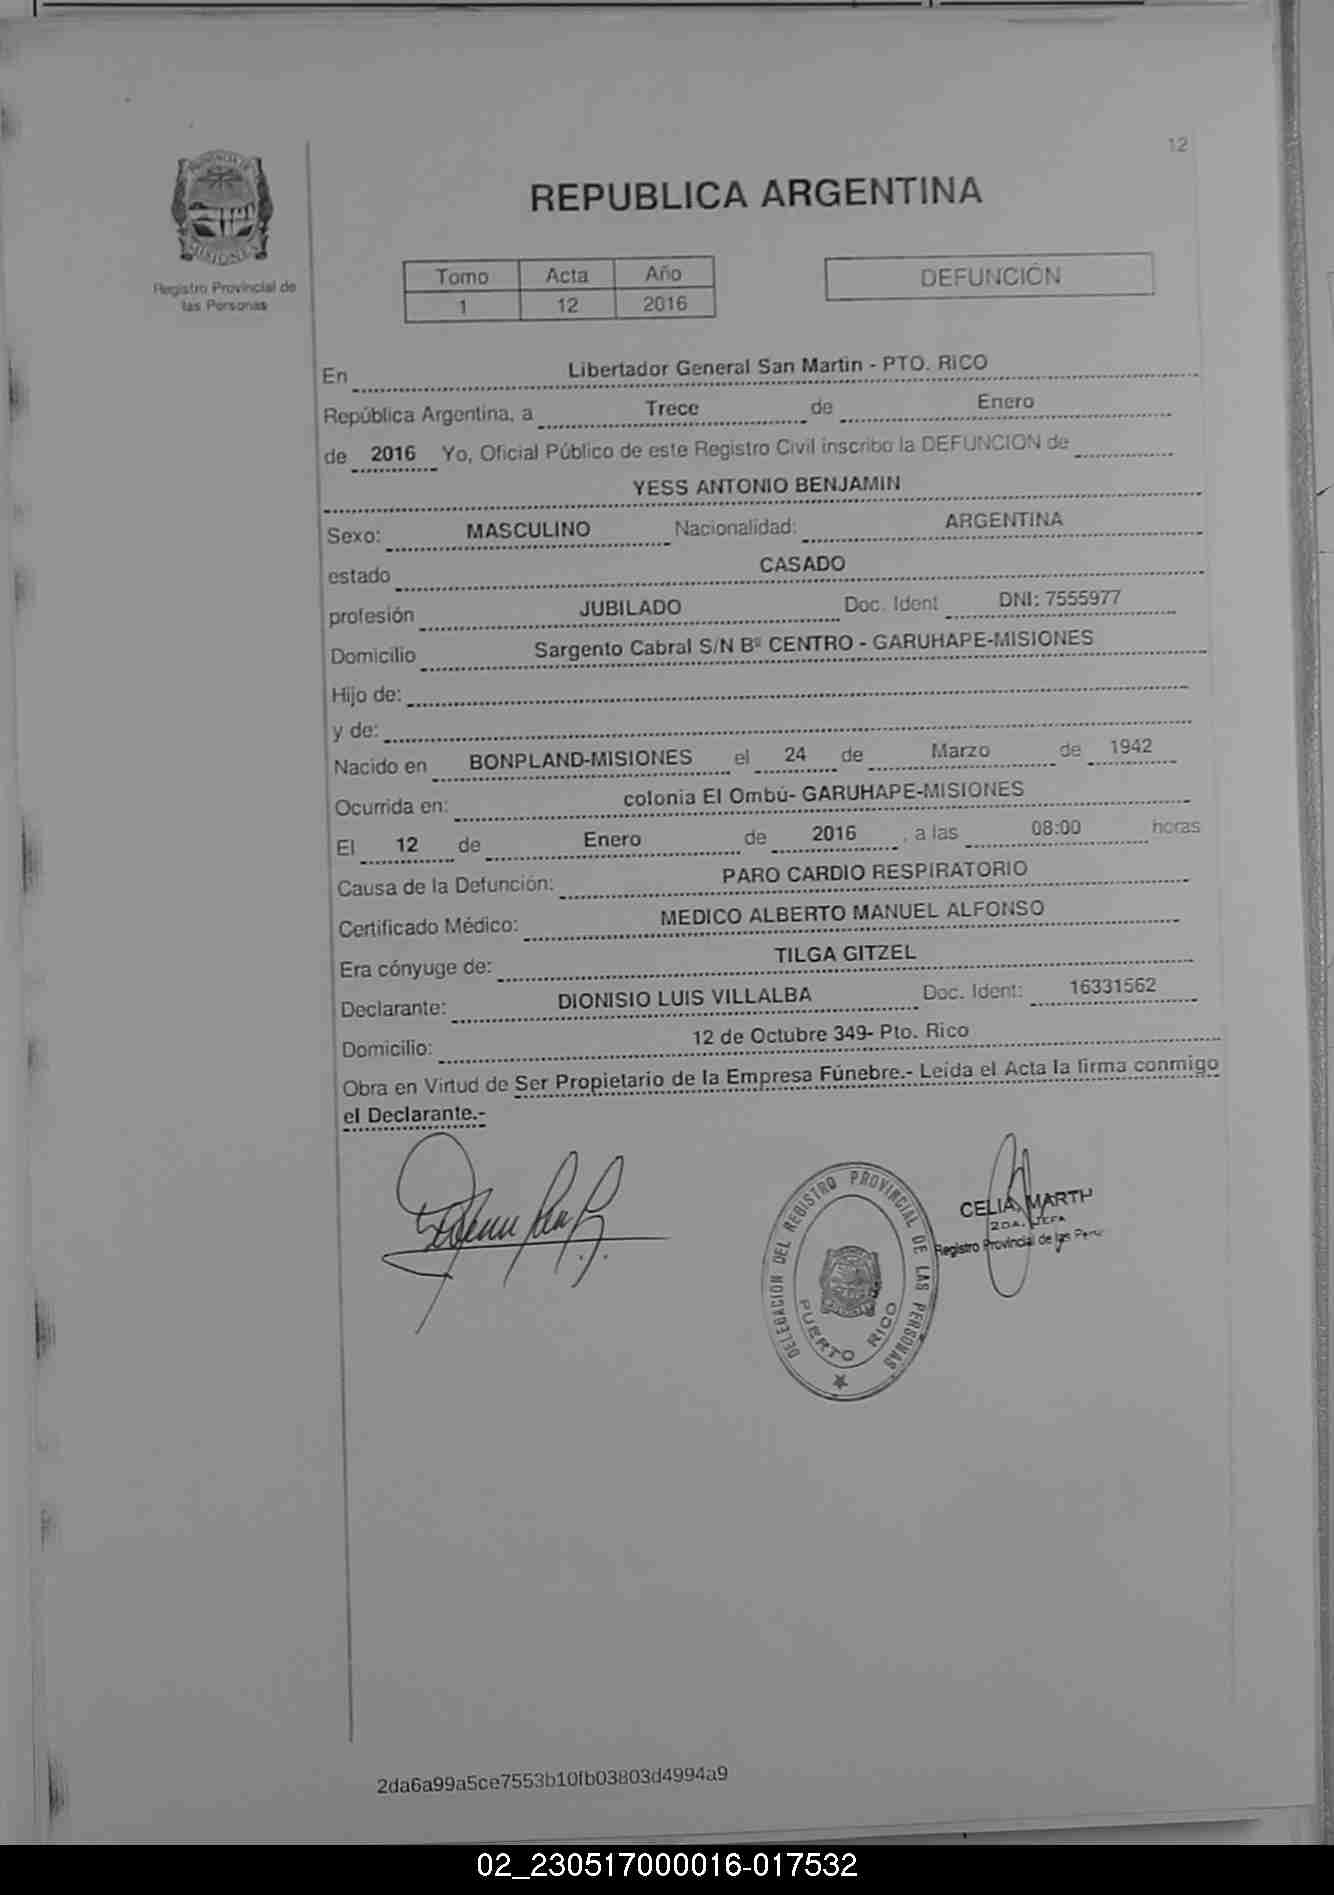 12
PROVINCIA DE
MISIONES
Registro Provincial de
las Personas
REPUBLICA ARGENTINA
Tomo Acta Año
1 12 2016
DEFUNCIÓN
En Libertador General San Martin - PTO. RICO
República Argentina, a Trece de Enero
de 2016 Yo, Oficial Público de este Registro Civil inscribo la DEFUNCION de
YESS ANTONIO BENJAMIN
Sexo: MASCULINO Nacionalidad: ARGENTINA
estado CASADO
profesión JUBILADO Doc. Ident DNI: 7555977
Domicilio Sargento Cabral S/N Bº CENTRO - GARUHAPE-MISIONES
Hijo de:
y de:
Nacido en BONPLAND-MISIONES el 24 de Marzo de 1942
Ocurrida en: colonia El Ombú- GARUHAPE-MISIONES
El 12 de Enero de 2016 , a las 08:00 horas
Causa de la Defunción: PARO CARDIO RESPIRATORIO
Certificado Médico: MEDICO ALBERTO MANUEL ALFONSO
Era cónyuge de: TILGA GITZEL
Declarante: DIONISIO LUIS VILLALBA Doc. Ident: 16331562
Domicilio: 12 de Octubre 349- Pto. Rico
Obra en Virtud de Ser Propietario de la Empresa Fúnebre.- Leída el Acta la firma conmigo
el Declarante.-
DELEGACION DEL REGISTRO PROVINCIAL DE LAS PERSONAS
PUERTO RICO
CELIA MARTH
2DA. JEFA
Registro Provincial de las Pers
2da6a99a5ce7553b10fb03803d4994a9
02_230517000016-017532